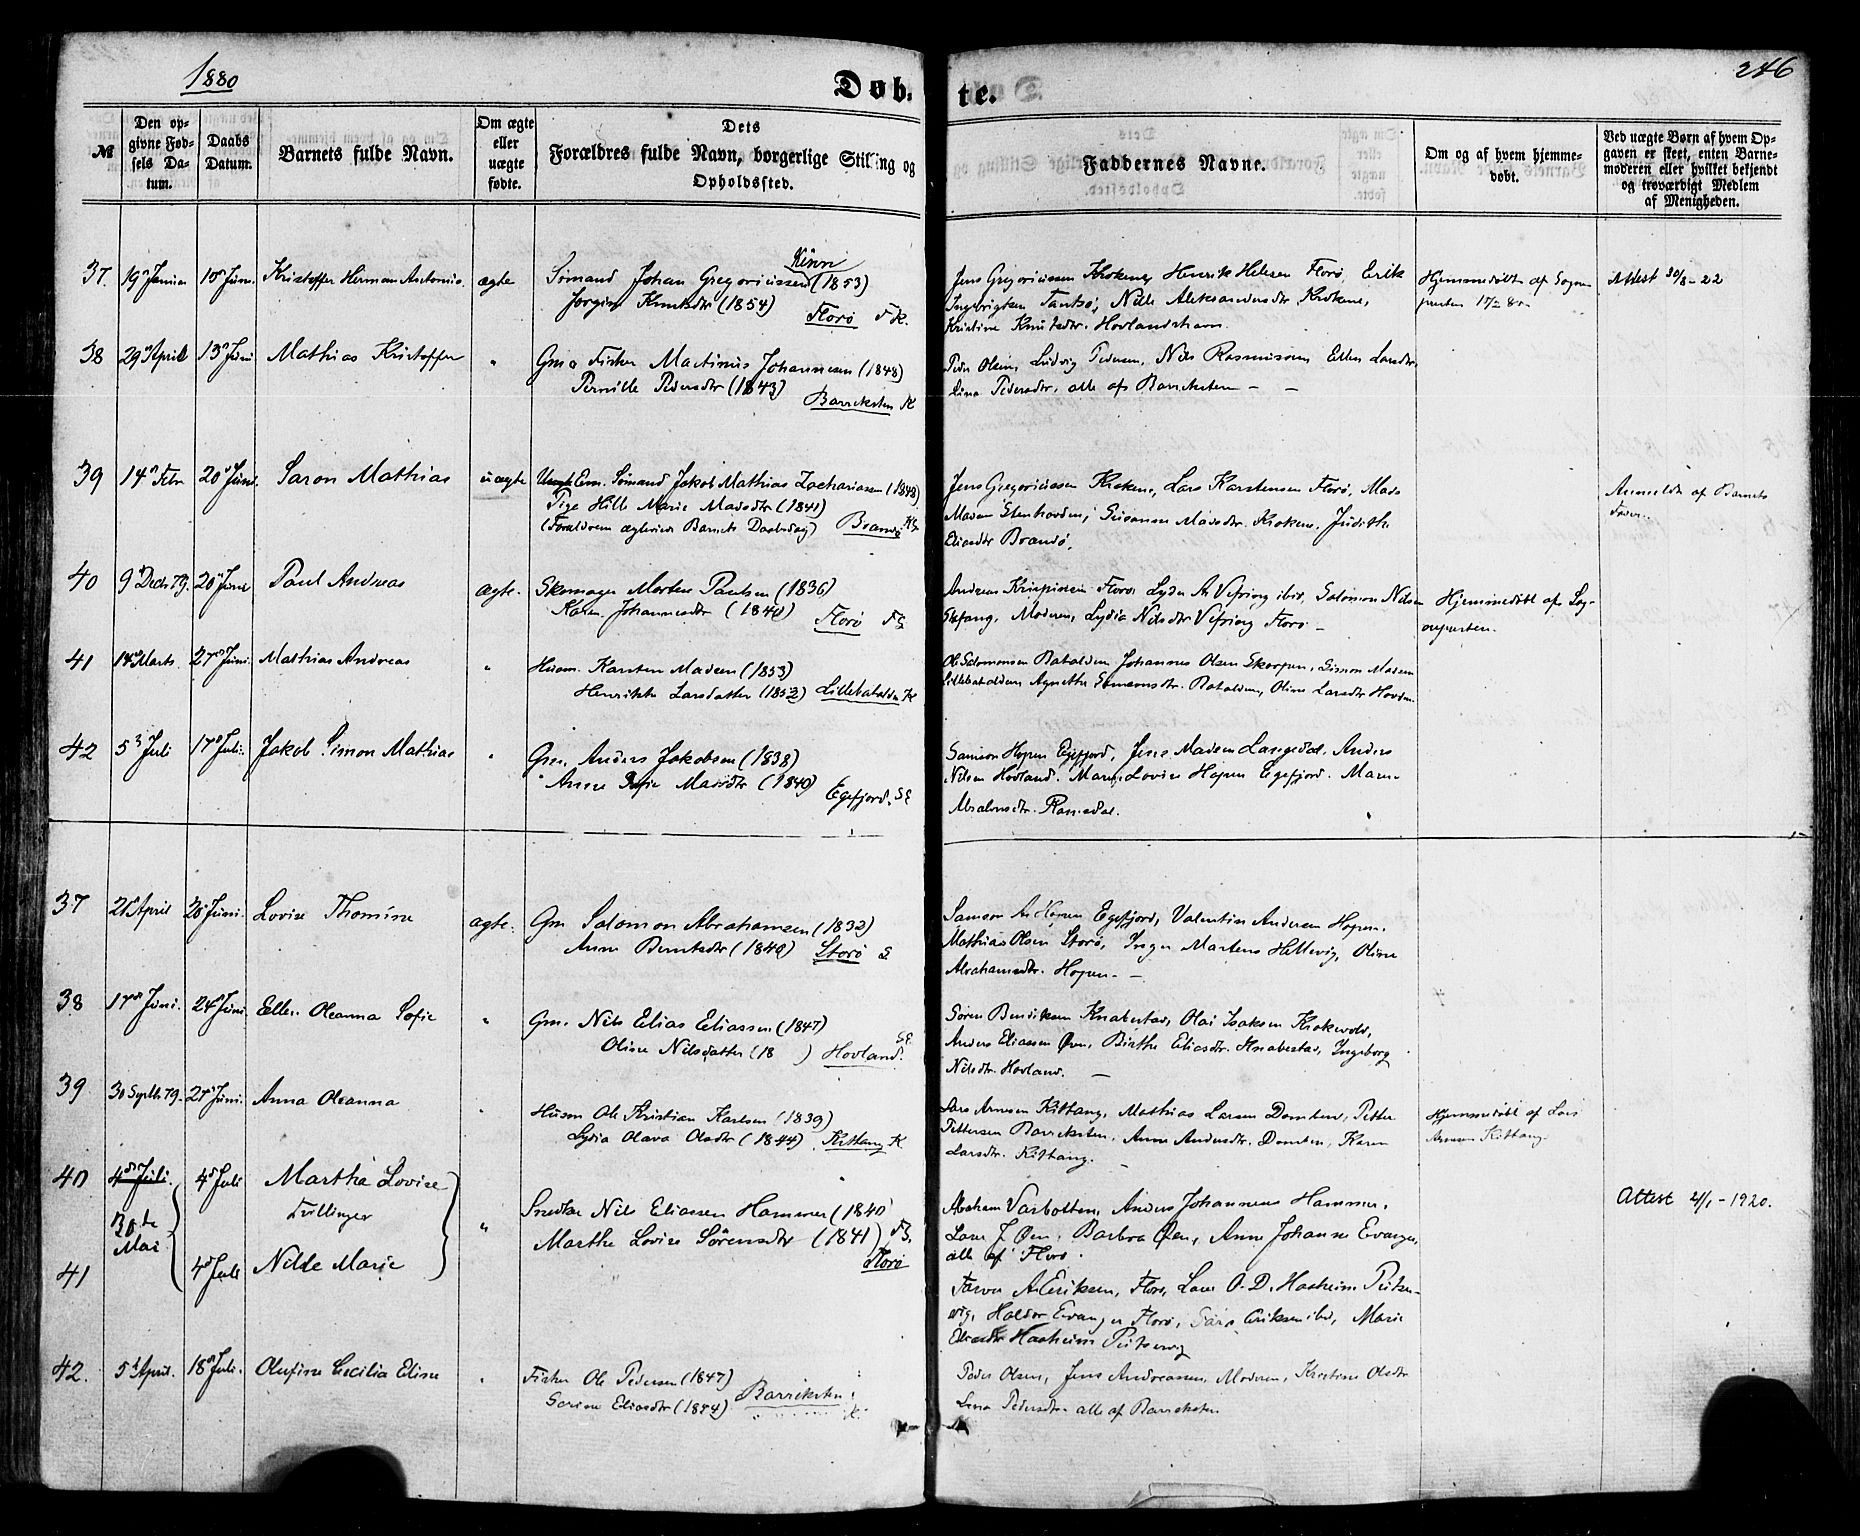 1880
Døbte.
246
№
Den opgivne Fødsels Datum.
Daabs Datum.
Barnets fulde Navn.
Om ægte eller uægte fødte.
Dets Forældres fulde Navn, borgerlige Stilling og Opholdssted.
Faddernes Navne.
Om og af hvem hjemmedøbt.
Ved uægte Børn af hvem Opgaven er skeet, enten Barnemoderen eller hvilket bekjendt og troværdigt Medlem af Menigheden.
37.
Kristoffer Herman Antonius.
ægte
Kinn
Sømand Johan Gregoriussen (1853)
Jorgine Knutsdtr (1854) Florø
Jens Gregoriussen Krokene, Henrik Florø, Erik
Nille Aleksandersdtr. Krokene,
Kristine Knutsdtr. Hovlandshavn.
Hjemmedøbt af Sogne-
presten
Attest 30/8-22
38
29 April
13 Juni
Mathias Kristoffer
"
Fisker Martinus Johannessen (1848)
Pernille Pedersdtr (1843)
Barreksten K
Peder Olsen, Ludvig Pedersen, Nils Rasmussen, Ellen Larsdtr,
Lina Pedersdtr, alle af Barreksten —
39
14 Febr
20 Juni
Saron Mathias
uægte
Sømand Jakob Mathias Zachariassen (1848)
Pige Hille Marie Madsdtr (1841)
(Forældrene Barnets Daabsdag) Brandø
Jens Gregoriussen Krokene, Lars Karstensen Florø, Mads
Madsen Stenhovden, Susanne Madsdtr. Krokene, Judithe
Eliasdtr Brandø.
Anmeldt af Barnets
Fader.
40
9 Decbr 79.
20 Juni
Paul Andreas
ægte.
Skomager Morten Paulsen (1836)
Karen Johannesdtr (1840)
Florø
Andreas Florø, Lyder A. Vefring ibid, Salomon Nilsen
Moderen, Lydia Nilsdtr Vefring Florø —
Hjemmedøbt af Sog-
nepresten.
41
14 Marts.
27 Juni.
Mathias Andreas
"
Husm. Karsten Madsen (1853)
Henrikke Larsdatter (1852) Lillebatalden K
Ole Salomonsen Batalden, Johannes Olsen Skorpen, Simon Madsen
Lillebatalden, Agnethe Batalden, Oline Larsdtr Hovden.
42
5 Juli
17 Juli.
Jakob Simon Mathias
"
Gm. Anders Jakobsen (1838)
Anne Sofie Madsdtr (1840)
Egefjord.
Samson Hopen Egefjord, Jens Madsen Langedal. Anders
Nilsen Hovland. Maren Lovise Hopen Egefjord. Maren
Absalonsdtr. Ramsdal.
37
21 April
20 Juni.
Lovise Thomine
ægte.
Gm Salomon Abrahamsen (1832)
Anne Berntsdtr (1840) Storø S
Samson A. Hopen Egefjord, Valentin Andersen Hopen.
Mathias Olsen Storø, Inger Martens Hellevig, Oline
Abrahamsdtr. Hopen. —
38
17 Juni.
24 Juni.
Ellen Oleanna Sofie
"
Gm. Nils Elias Eliassen (1847)
Oline Nilsdatter (18 ) Hovland.
Søren Bendiksen Knabestad, Olai Isaksen Krokevold,
Anders Eliassen Øen, Birthe Eliasdtr. Knabestad, Ingeborg
Nilsdtr. Hovland. —
39
30 Septbr 79.
27 Juni.
Anna Oleanna
"
Husm Ole Kristian Karlsen (1839)
Lydia Olava Olsdtr (1844) Kittang K
Lars Arnesen Kittang, Mathias Larsen Domben, Petter
Pettersen Barreksten, Anne Andersdtr. Domben, Karen
Larsdtr. Kittang. —
Hjemmedøbt af Lars
Arnesen Kittang
40
4de Juli.
30te
Mai
4 Juli
Martha Lovise
Tvillinger
"
Snedker Nils Eliassen Hammer (1840)
Marthe Lovise Sørensdtr (1841)
Florø
Abraham Varbotten, Anders Johannesen Hammer,
Lars J. Øen, Barbra Øen, Anne Johanne Evanger,
alle af Florø.
Attest 21/1-1920.
41
4 Juli
Nilde Marie
A. Eriksen, Florø, Lars O. D. Hasheim
Haldor Evanger Florø, Eriksen ibid, Marie
Hasheim
42.
5 April.
18 Juli.
Olufine Cecilia Eline
"
Fisker Ole Pedersen (1847)
Sorine Eliasdtr (1844) Barreksten
K.
Peder Olsen, Jens Andreassen, Moderen, Kristine Olsdtr
Lina Pedersdtr alle af Barreksten